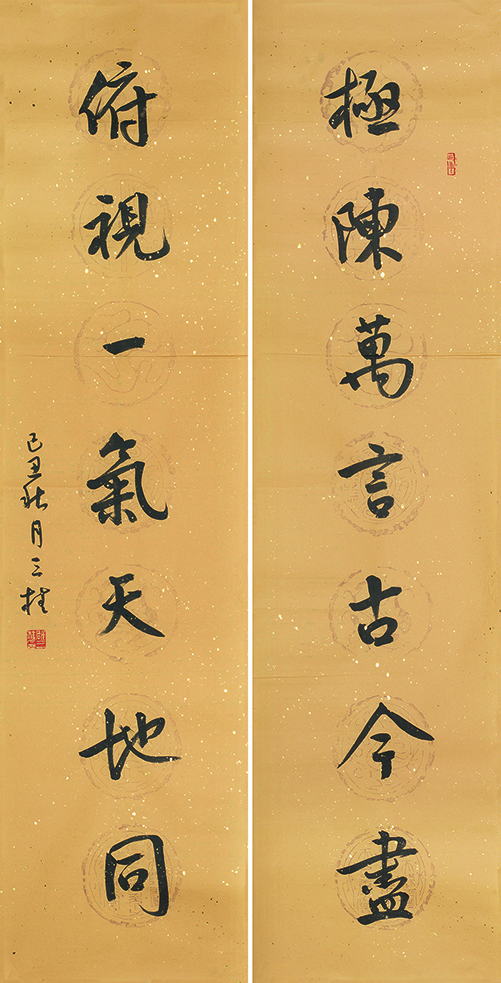 極陳萬言古今盡
俯視一氣天地同
己丑秋月三桂